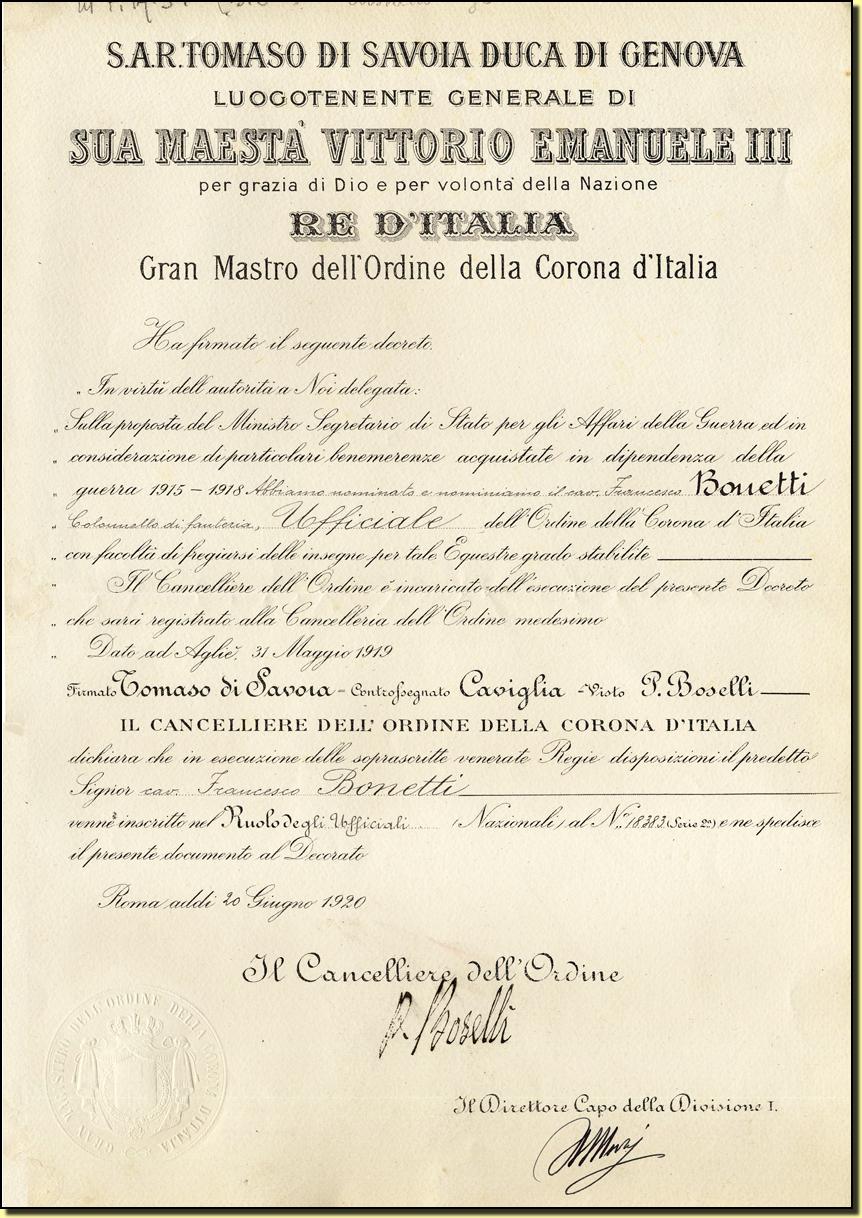 S.A.R. TOMASO DI SAVOIA DUCA DI GENOVA
LUOGOTENENTE GENERALE DI
SUA MAESTÀ VITTORIO EMANUELE III
per grazia di Dio e per volontà della Nazione
RE D'ITALIA
Gran Mastro dell'Ordine della Corona d'Italia
Ha firmato il seguente decreto:
„ In virtù dell'autorità a Noi delegata:
„ Sulla proposta del Ministro Segretario di Stato per gli Affari della Guerra ed in
„ considerazione di particolari benemerenze acquistate in dipendenza della
„ guerra 1915-1918 Abbiamo nominato e nominiamo il cav. Francesco Bonetti
„ Colonnello di fanteria, Ufficiale dell'Ordine della Corona d'Italia
„ con facoltà di fregiarsi delle insegne per tale Equestre grado stabilite
„ Il Cancelliere dell'Ordine è incaricato dell'esecuzione del presente Decreto
„ che sarà registrato alla Cancelleria dell'Ordine medesimo
„ Dato ad Agliè, 31 Maggio 1919
Firmato Tomaso di Savoia - Controssegnato Caviglia - Visto P. Boselli
IL CANCELLIERE DELL'ORDINE DELLA CORONA D'ITALIA
dichiara che in esecuzione delle soprascritte venerate Regie disposizioni il predetto
Signor cav. Francesco Bonetti
venne inscritto nel Ruolo degli Ufficiali (Nazionali) al N.° 18383 (Serie 2a) e ne spedisce
il presente documento al Decorato
Roma, addì 20 Giugno 1920
Il Cancelliere dell'Ordine
P. Boselli
Il Direttore Capo della Divisione I.
GRAN MAGISTERO DELL'ORDINE DELLA CORONA D'ITALIA